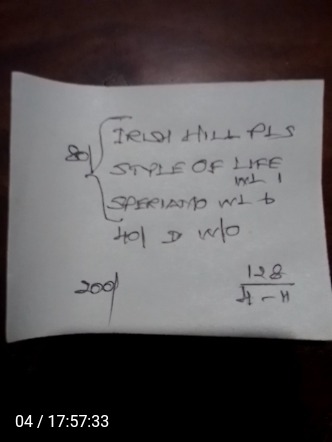 80/ IRISH HILL PLS
STYLE OF LIFE
WL 1
SPERIAMO WL 6
40/ D W/O
200/
128
4 - 11
04 / 17:57:33